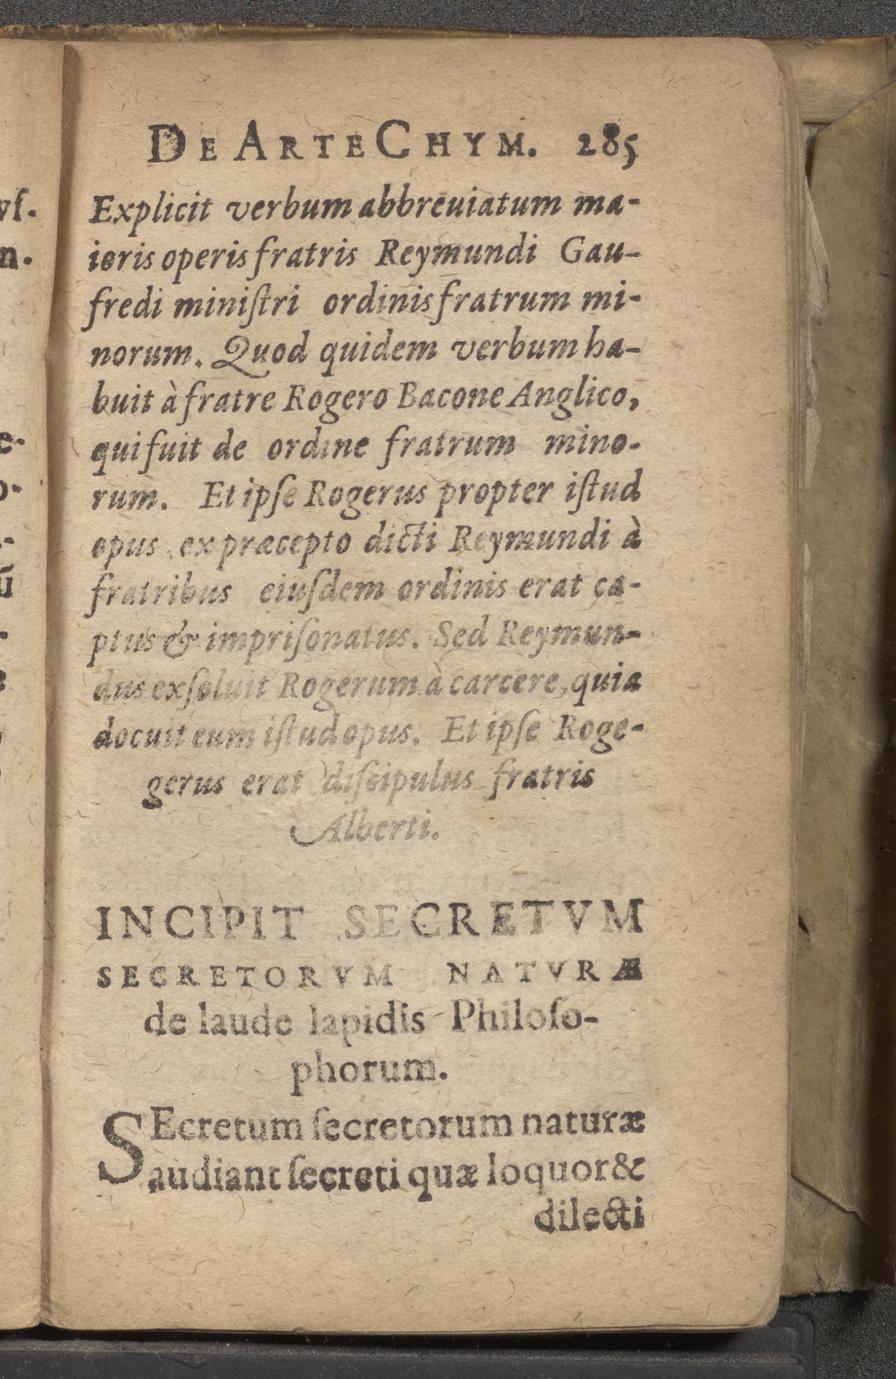 DE ARTE CHYM. 285
Explicit verbum abbreuiatum ma-
ioris operis fratris Reymundi Gau-
fredi miniſtri ordinis fratrum mi-
norum. Quod quidem verbum ha-
buit à fratre Rogero Bacone Anglico,
qui fuit de ordine fratrum mino-
rum. Et ipſe Rogerus propter iſtud
opus ex præcepto dicti Reymundi à
fratribus eiuſdem ordinis erat ca-
ptus & impriſonatus. Sed Reymun-
dus exſoluit Rogerum à carcere, quia
docuit eum iſtud opus. Et ipſe Roge-
gerus erat diſcipulus fratris
Alberti.
INCIPIT SECRETVM
SECRETORVM NATVRÆ
de laude lapidis Philoſo-
phorum.
SEcretum ſecretorum naturæ
audiant ſecreti quæ loquor &
dilecti